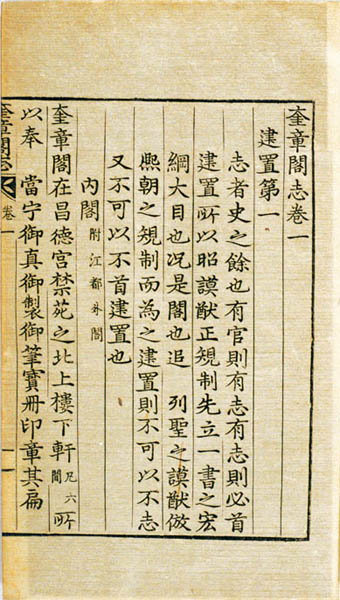 奎章閣志卷一
建置第一
志者史之餘也有官則有志有志則必首
建置所以昭謨猷正規制先立一書之宏
綱大目也况是閣也追 列聖之謨猷倣
熙朝之規制而為之建置則不可以不志
又不可以不首建置也
內閣附江都外閣
奎章閣在昌德宮禁苑之北上樓下軒凡六間所
以奉 當宁御真御製御筆寶冊印章其扁
奎章閣志 卷一 一